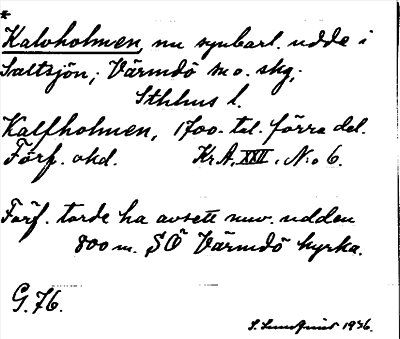 *
Kalvholmen, nu synbarl. udde i
Saltsjön; Värmdö sn o. skg,
Sthlms l.
Kalfholmen, 1700-tal. förra del.
Förf. okd. Kr.A. XXII, No 6.
Förf. torde ha avsett nuv. udden
800 m. SÖ Värmdö kyrka.
G.76.
S. 1936.